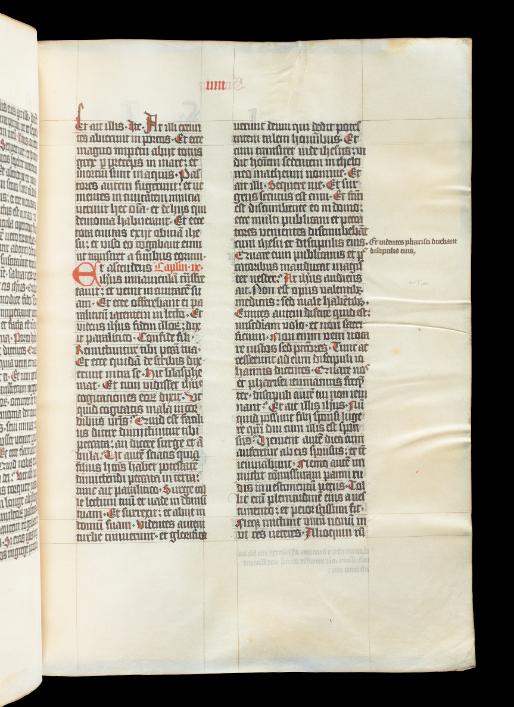 Et ait illis · Ite · At illi exeun
tes abierunt in porcos · Et ecce
magno impetu abiit totus
grex p preceps in mare : et
mortui sunt in aquis · Pas
tores autem fugerunt : et ve
nientes in civitatem
demonia habuerant · Et ecce
tota civitas exiit obviā ihe
su : et viso eo rogabant eum
ut transiret a finibus eorum ·
Et ascendens Caplm ix
ihesus in naviculā trāsfre
tavit : et venit in civitatē su
am · Et ecce offerebant ei pa
raliticū iacentem in lecto · Et
videns ihsus fidem illoꝝ : dix
it paralitico · Confide fili ·
Remittuntur tibi peccata tua ·
Et ecce quidā de scribis dix
erunt intra se · Hic blasphe
mat · Et cum vidisset ihūs
cogitationes eorū dixit · Ut
quid cogitatis mala in cor
dibus vr̄is · Quid est facili
us dicere dimittuntur tibi
peccata : an dicere surge et ā
bula · Ut autē sciatis quia
filius hoīs habet potestatē
dimittendi peccata in terra :
tunc ait paralitico · Surge toll
e lectum tuū et vade in domū
tuam · Et surrexit : et abiit in
domū suam · Videntes autem
turbe timuerunt · et glorifica
verunt deum qui dedit potes
tatem talem hominibus · Et
cum transiret inde ihesus : vi
dit hoīem sedentem in theloneo
matheum nomine · Et
ait illi · Sequere me · Et sur
gens secutus est eum · Et factū
est discumbente eo in domo :
ecce multi publicani et pecca
tores venientes discumbebāt
cum ihesu et discipulis eius ·
Quare cum publicanis et pec
catoribus manducat magis
ter vester · At ihsus audiens
ait · Non est opus valentibꝰ
medicus : sed male habētibꝰ ·
Euntes autem discite quid est :
misericordiam volo · et non sacri
ficium · Non enim veni voca
re iustos sed peccatores · Tunc ac
cesserunt ad eum discipuli io
hannis dicentes · Quare nos
et pharisei ieiunamus frequen
ter : discipuli autē tui non ieiu
nant · Et ait illis ihūs · Nū
quid possunt filii sponsi luge
re qm̄ diu cum illis est spon
sus · Venient autē dies cum
auferetur ab eis sponsus : et tūc
ieiunabunt · Nemo autē im
mittit commissurā panni ru
dis in vestimentū vetus · Tol
lit enī plenitudinē eius a vesti
mento : et peior scissura fit ·
Neqꝫ mittunt vinū novū in
utres veteres · Alioquin rū
Et videntes pharisei dicebant
discipulis eius,